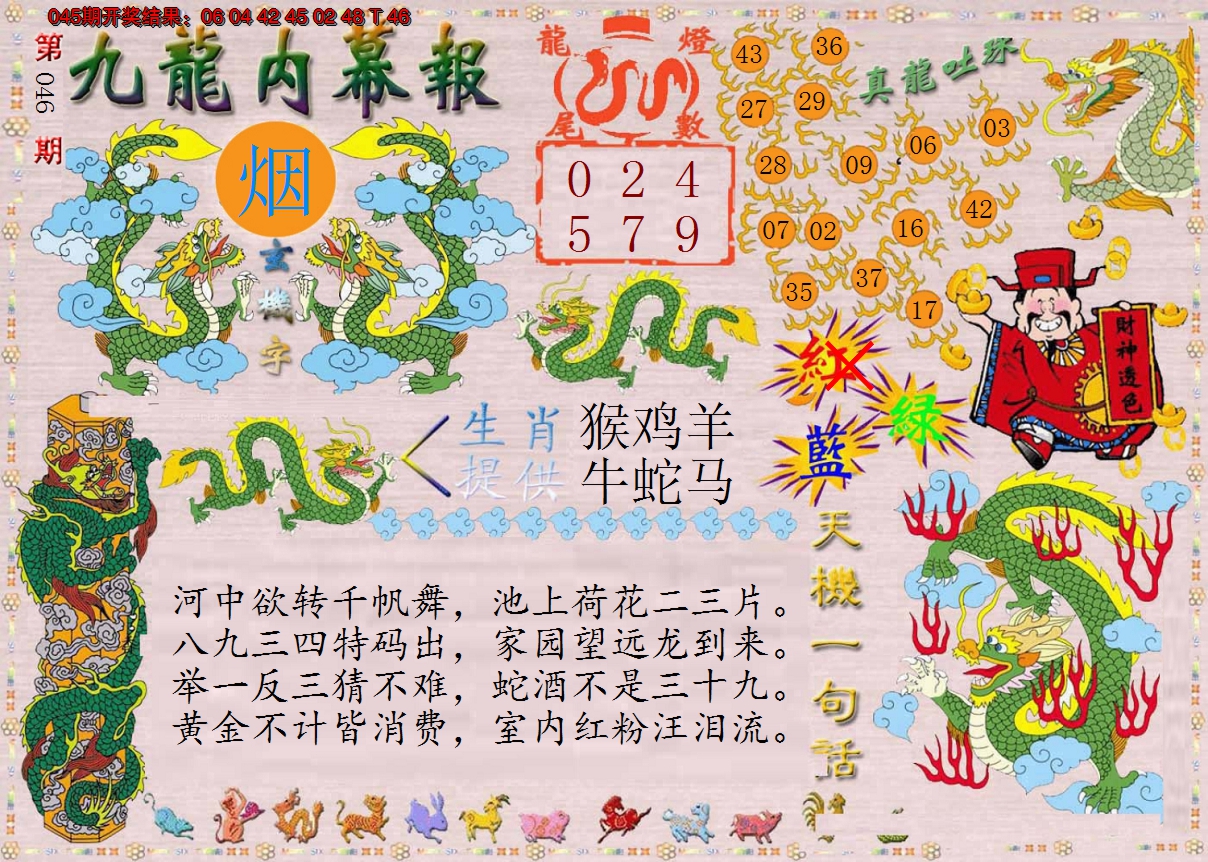 045期开奖结果：06 04 42 45 02 48 T 46
第046期
九龍内幕報
烟
玄機字
龍燈
尾數
0 2 4
5 7 9
真龍吐珠
43
36
27
29
28
09
06
03
07
02
16
42
35
37
17
財神透色
紅
綠
藍
生肖 猴鸡羊
提供 牛蛇马
天機一句話
河中欲转千帆舞，池上荷花二三片。
八九三四特码出，家园望远龙到来。
举一反三猜不难，蛇酒不是三十九。
黄金不计皆消费，室内红粉汪泪流。